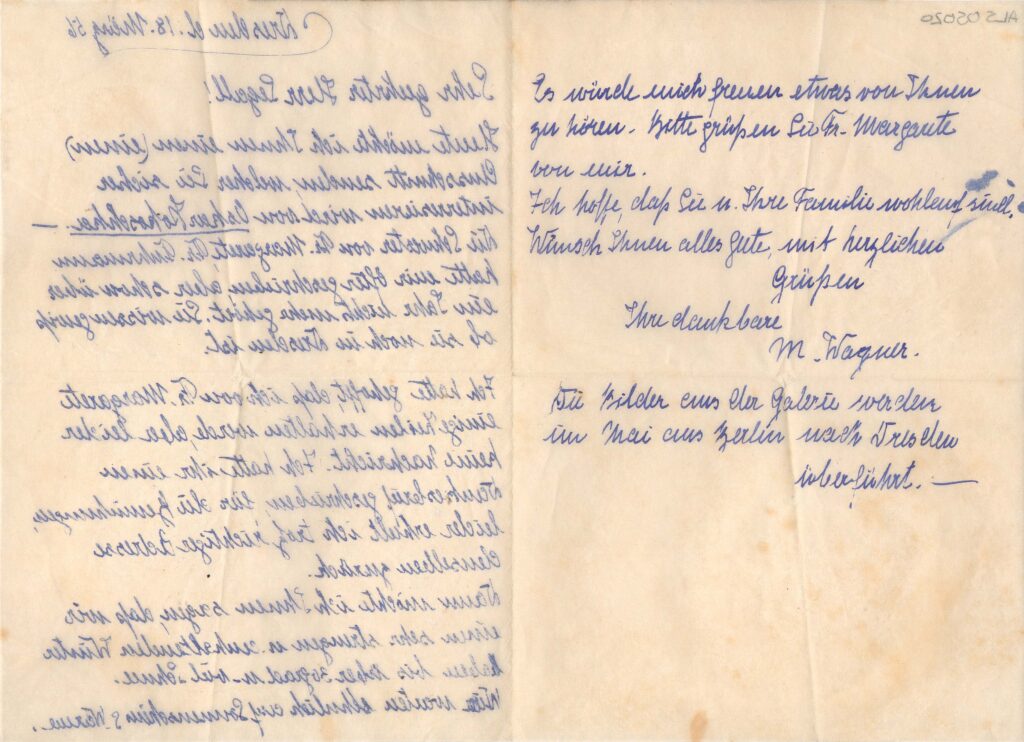 Dresden d. 18. März 56
Sehr geehrter Herr Segall!
Heute möchte ich Ihnen einen (einen)
Ausschnitt senden welcher Sie sicher
interessieren wird von Oskar Kokoschka. —
Die Schwester von Fr. Margarete, Fr.
hatte mir öfter geschrieben aber schon über
ein Jahr nichts mehr gehört. Sie wissen gewiß
ob sie noch in Dresden ist.
Ich hatte gehofft, daß ich von Fr. Margarete
einige Zeilen erhalten werde, aber leider
keine Nachricht. Ich hatte ihr einen
Dankesbrief geschrieben für die Bemühungen,
leider erhielt ich trotz richtiger Adresse
denselben zurück.
Dann möchte ich Ihnen sagen, daß wir
einen sehr strengen u. anhaltenden Winter
haben bis über 30 grad u. viel Schnee.
Wir warten sehnlich auf Sonnenschein u. Wärme.
ALS 05020
Es würde mich freuen etwas von Ihnen
zu hören. Bitte grüßen Sie Fr. Margarete
von mir.
Ich hoffe, daß Sie u. Ihre Familie wohlauf sind.
Wünsch Ihnen alles gute, mit herzlichen
Grüßen
Ihre dankbare
M. Wagner.
Die Bilder aus der Galerie werden
im Mai aus Berlin nach Dresden
überführt. —